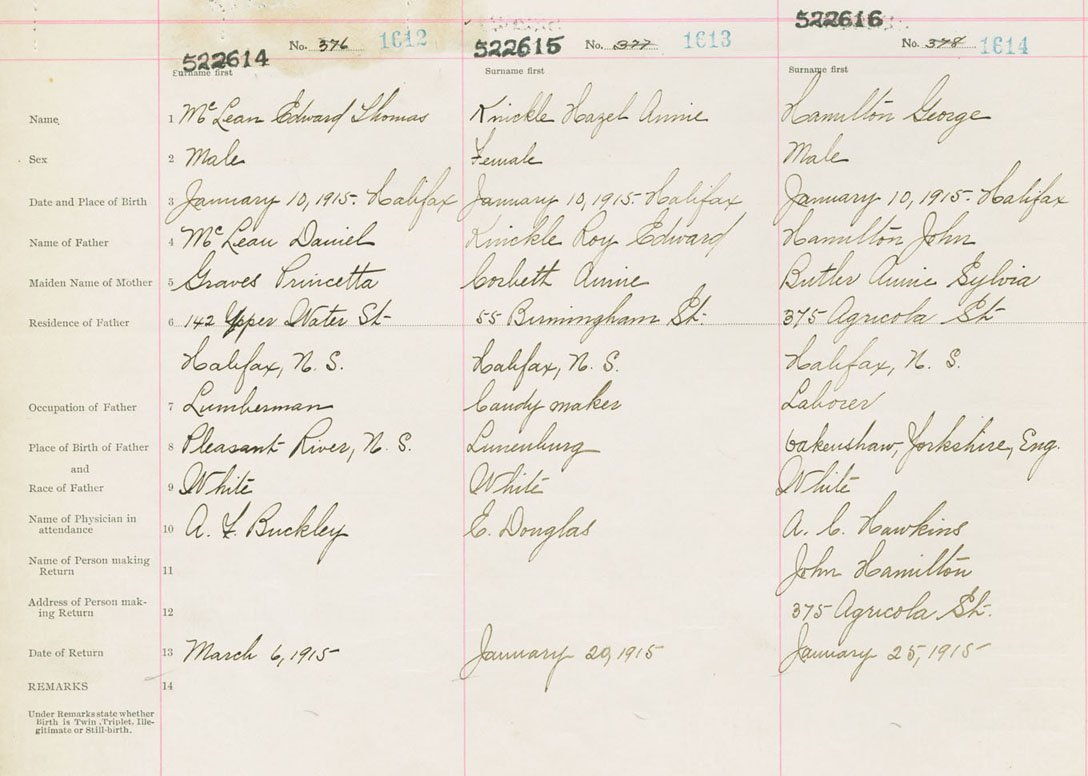 522616
No. 376 1612
No. 377 1613
No. 378 1614
522614
522615
Surname first
Surname first
Surname first
Name 1 McLean Edward Thomas Kinckle Hazel Annie Hamilton George
Sex 2 Male Female Male
Date and Place of Birth 3 January 10, 1915. Halifax January 10, 1915. Halifax January 10, 1915. Halifax
Name of Father 4 McLean Daniel Kinckle Roy Edward Hamilton John
Maiden Name of Mother 5 Graves Princetta Corbett Annie Butler Annie Sylvia
Residence of Father 6 142 Upper Water St. 55 Birmingham St. 375 Agricola St.
Halifax, N. S. Halifax, N. S. Halifax, N. S.
Occupation of Father 7 Lumberman Candy maker Laborer
Place of Birth of Father 8 Pleasant River, N. S. Lunenburg Oakenshaw, Yorkshire, Eng.
and
Race of Father 9 White White White
Name of Physician in attendance 10 A. F. Buckley E. Douglas A. C. Hawkins
Name of Person making Return 11 John Hamilton
Address of Person mak-
ing Return 12 375 Agricola St.
Date of Return 13 March 6, 1915 January 20, 1915 January 25, 1915
REMARKS 14
Under Remarks state whether
Birth is Twin, Triplet, Ille-
gitimate or Still-birth.